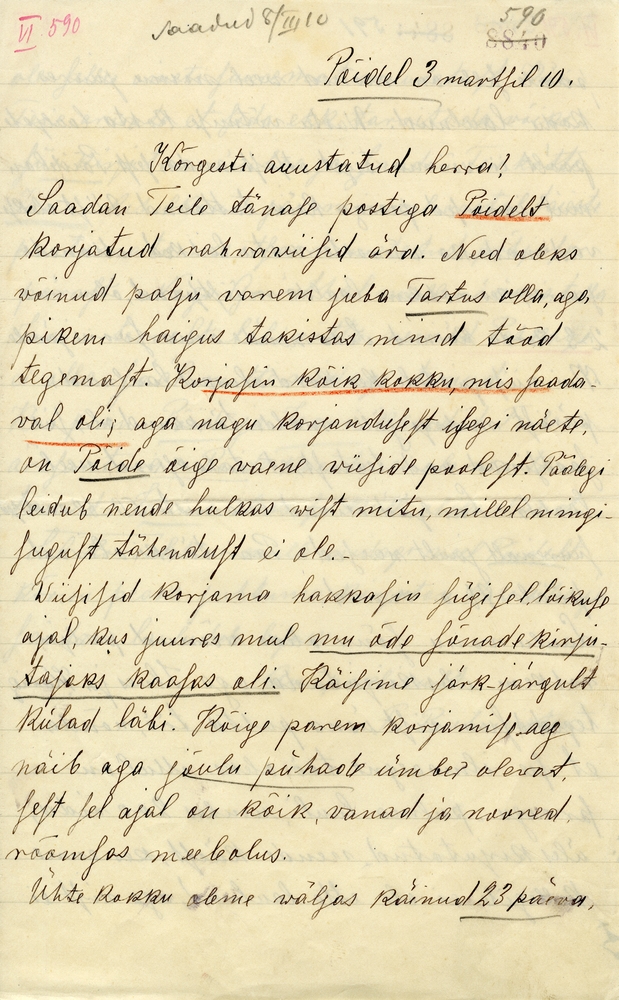 VI 590
Saadud 8/III 10
590
8840
Pöidel 3 martsil 10.
Kõrgesti auustatud herra!
Saadan Teile tänase postiga Pöidelt
korjatud rahwawiisid ära. Need oleks
wõinud palju varem juba Tartus olla, aga
pikem haigus takistas mind tööd
tegemast. Korjasin kõik kokku, mis saada-
val oli; aga nagu korjandusest isegi näete,
on Pöide õige vaene wiiside poolest. Päälegi
leidub nende hulkas wist mitu, millel mingi-
sugust tähendust ei ole.-
Wiisisid korjama hakkasin sügisel lõikuse
ajal, kus juures mul mu õde sõnade kirju-
tajaks kaasas oli. Käisime järk-järgult
külad läbi. Kõige parem korjamise aeg
näib aga jõulu pühade ümber olevat,
sest sel ajal on kõik, vanad ja noored,
rõõmsas meeleolus.
Ühte kokku oleme wäljas käinud 23 päeva,